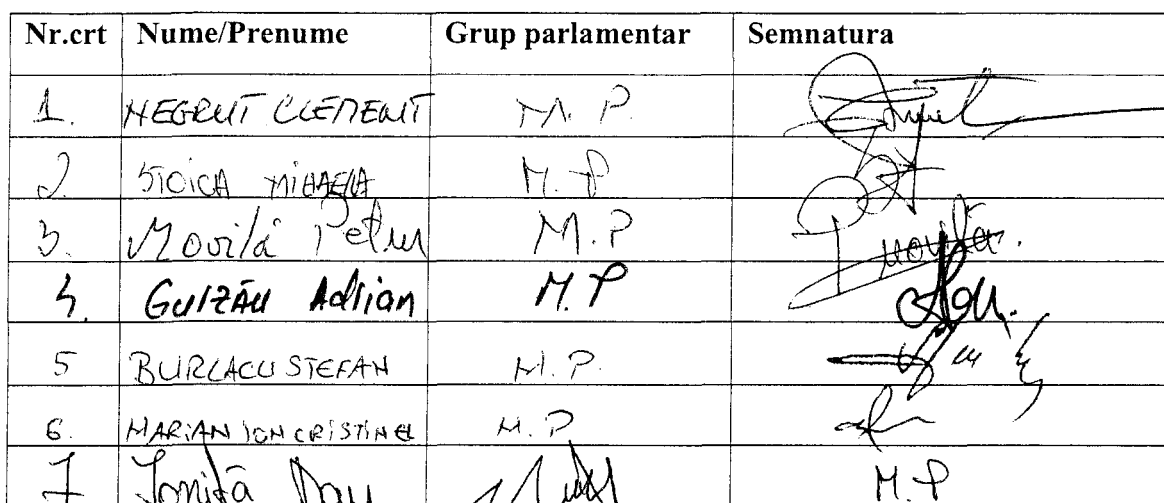 Nr.crt Nume/Prenume Grup parlamentar Semnatura
1. NEGRUT CLEMENT M.P.
2 STOICA MIHAELA M.P
3. Movilă Petru M.P P movilă.
4. GUIZĂU Adrian M.P
5 BURLACU STEFAN M.P.
6. MARIAN ION CRISTINEL M.P
7 Ioniță Dan M.P